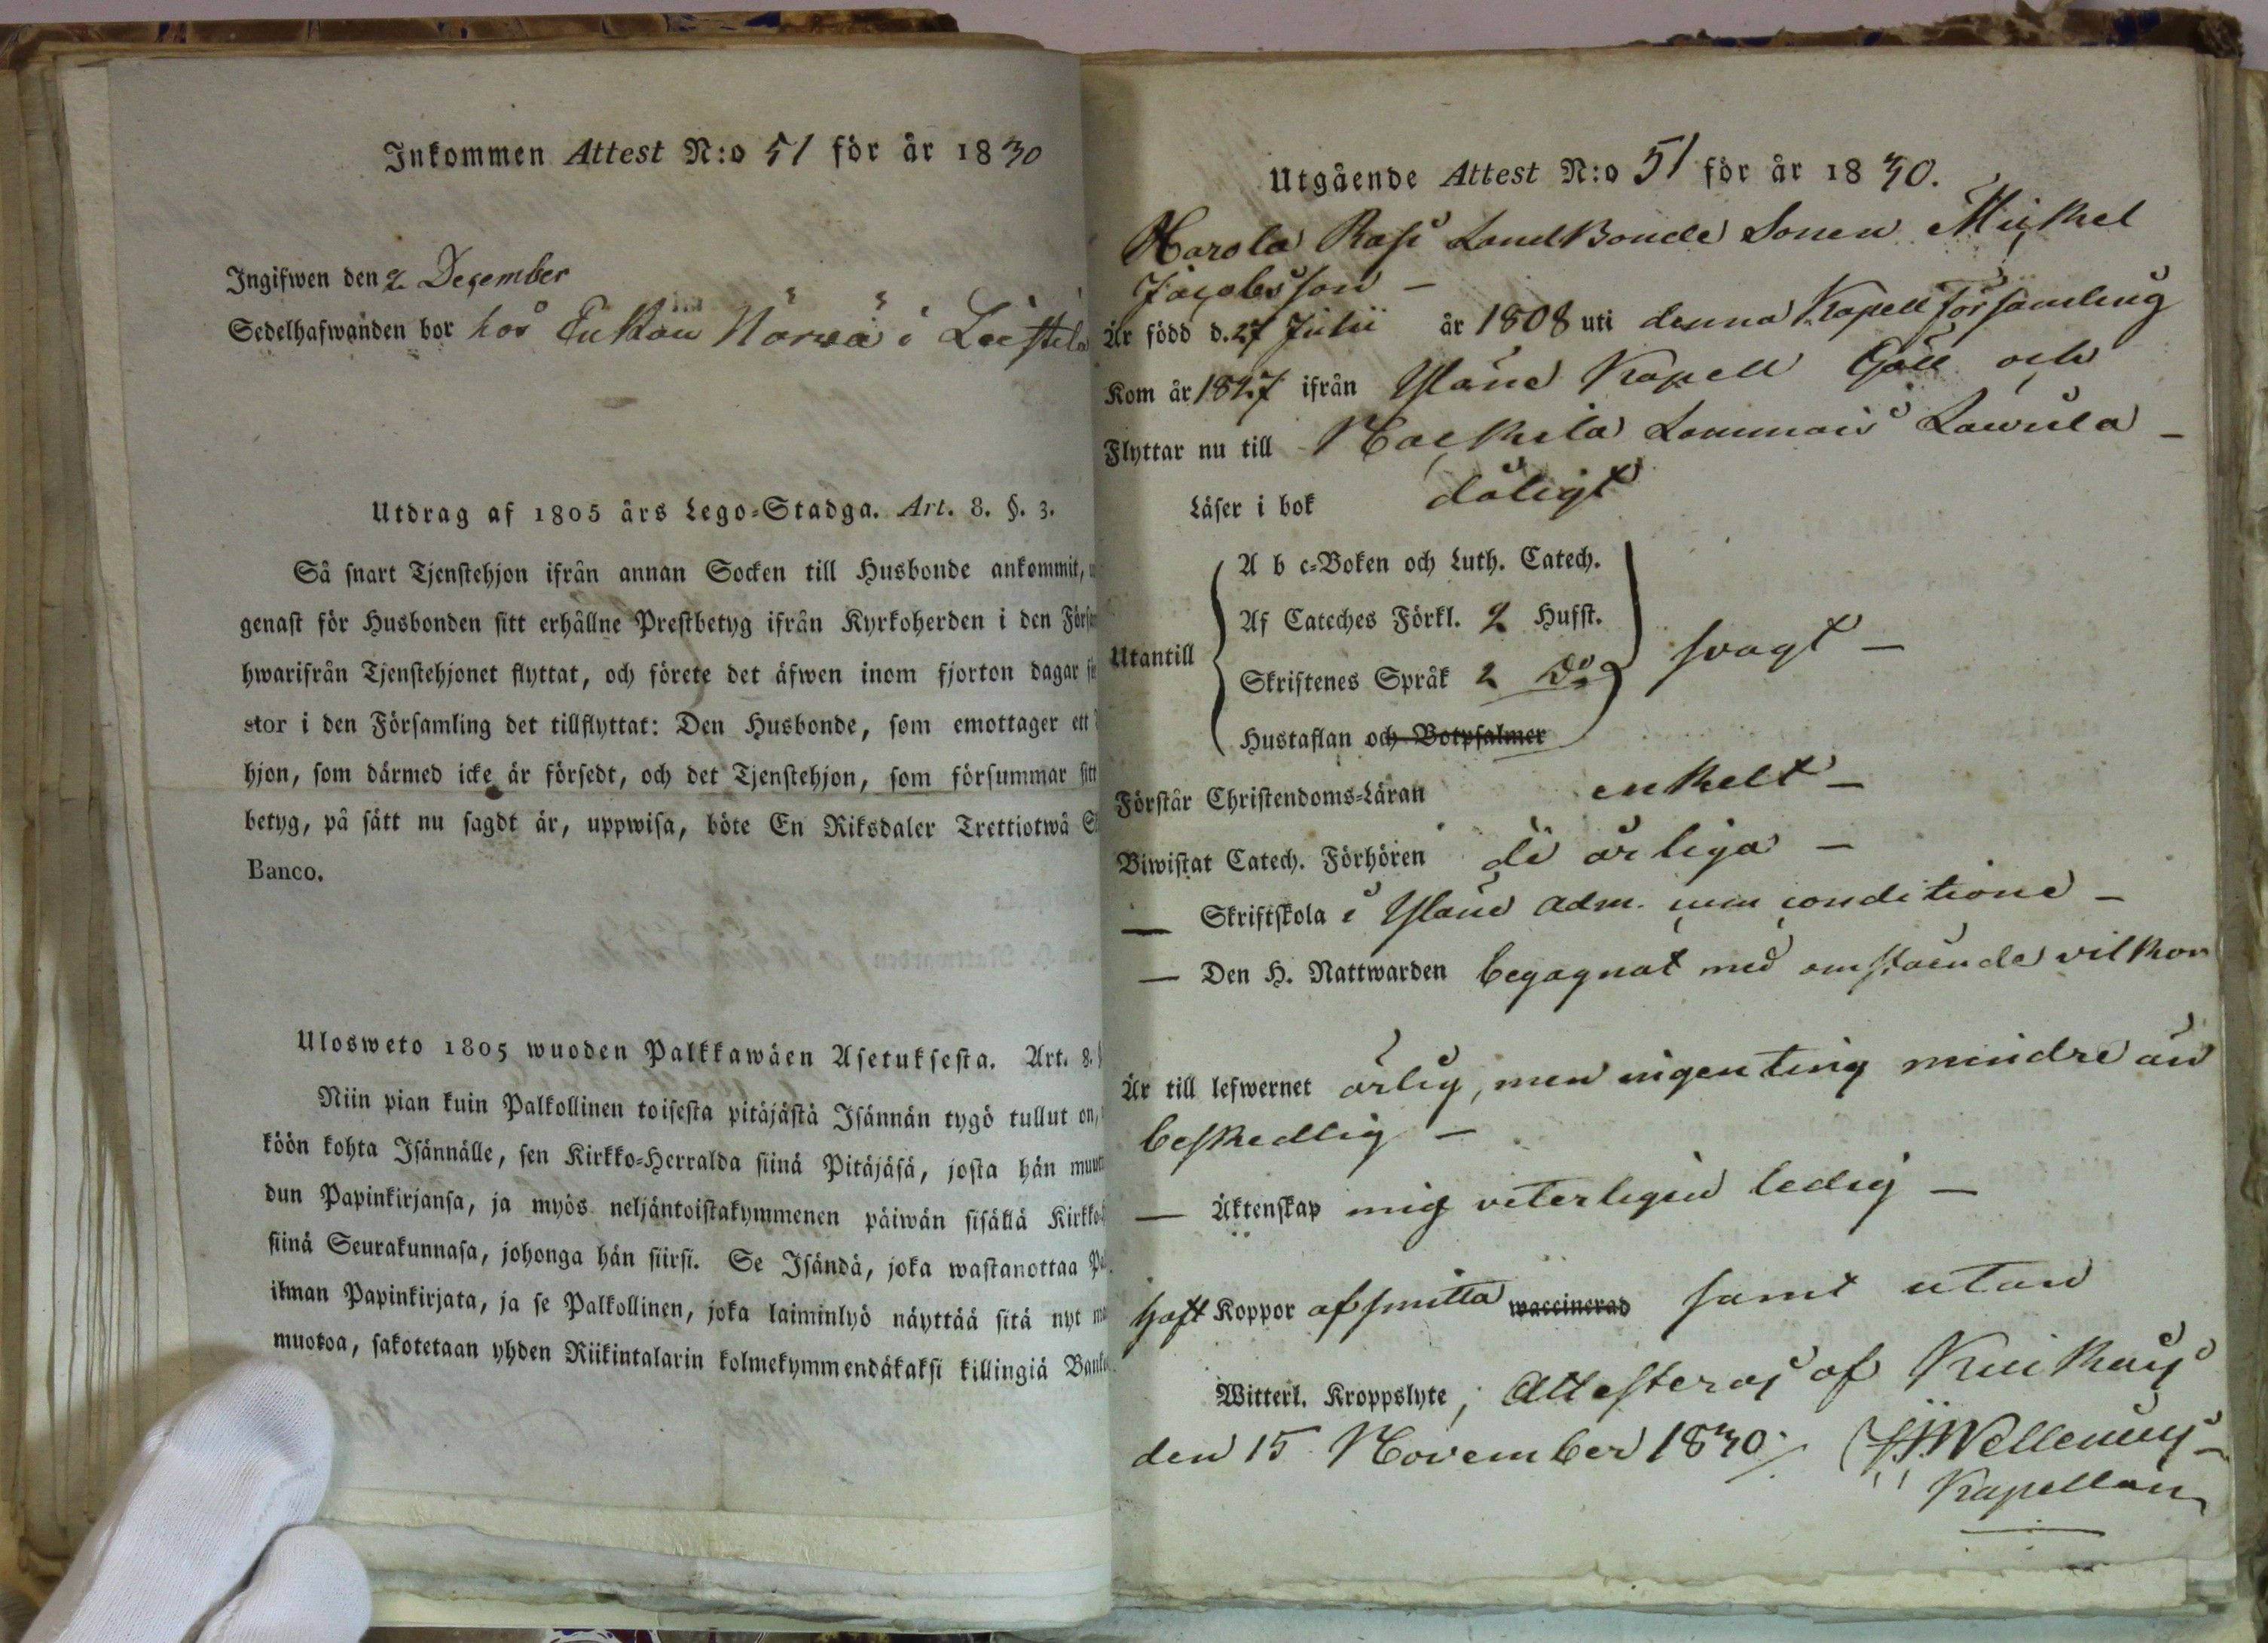 Inkommen Attest N:o 51 för år 1830
Ingifwen den 2 December
Sedelhafwanden bor hos Enkan Närvä i Leistilä
Utdrag af 1805 års Lego-Stadga. Art. 8. §. 3.
Så snart Tjenstehjon ifrån annan Socken till Husbonde ankommit,
genast för Husbonden sitt erhållne Prestbetyg ifrån Kyrkoherden i den
hwarifrån Tjenstehjonet flyttat, och förete det äfwen inom fjorton dagar
stor i den Församling det tillflyttat: Den Husbonde, som emottager ett
hjon, som därmed icke är försedt, och det Tjenstehjon, som försummar sitt
betyg, på sätt nu sagdt är, uppwisa, böte En Riksdaler Trettiotwå
Banco.
Ulosweto 1805 wuoden Palkkawäen Asetuksesta. Art. 8.
Niin pian kuin Palkollinen toisesta pitäjästä Isännän tygö tullut on,
köön kohta Isännälle, sen Kirkko-Herralda siinä Pitäjäsä, josta hän
dun Papinkirjansa, ja myös neljäntoistakymmenen päiwän sisällä
siinä Seurakunnasa, johonga hän siirsi. Se Isändä, joka wastanottaa
ilman Papinkirjata, ja se Palkollinen, joka laiminlyö näyttää sitä nyt
muotoa, sakotetaan yhden Riikintalarin kolmekymmendäkaksi killingiä
Utgående Attest N:o 51 för år 1830.
Harola Rasi Landbonde Sonen Michel
Jacobsson –
Är född d. 27 Julii år 1808 uti denna Kapell församling
Kom år 1827 ifrån Yläne Kapell och
Flyttar nu till Nackila Lammais Lawila –
Läser i bok dåligt
Utantill
A b c-Boken och Luth. Catech.
Af Cateches Förkl. 2 Hufst.
Skriftenes Språk 2 Do
Hustaflan och Botpsalmer
svagt –
Förstår Christendoms-Läran enkelt –
Biwistat Catech. Förhören de årliga –
— Skriftskola i Yläne adm. cum conditione –
— Den H. Nattwarden begagnat med omstående vilkor
Är till lefwernet ärlig, men ingenting mindre än
beskedlig –
— Äktenskap mig veterligen ledig –
haft Koppor af smitta waccinerad samt utan
Witterl. Kroppslyte, Attesteras af Kiukais
den 15 November 1830. Wellenius
Kapellan